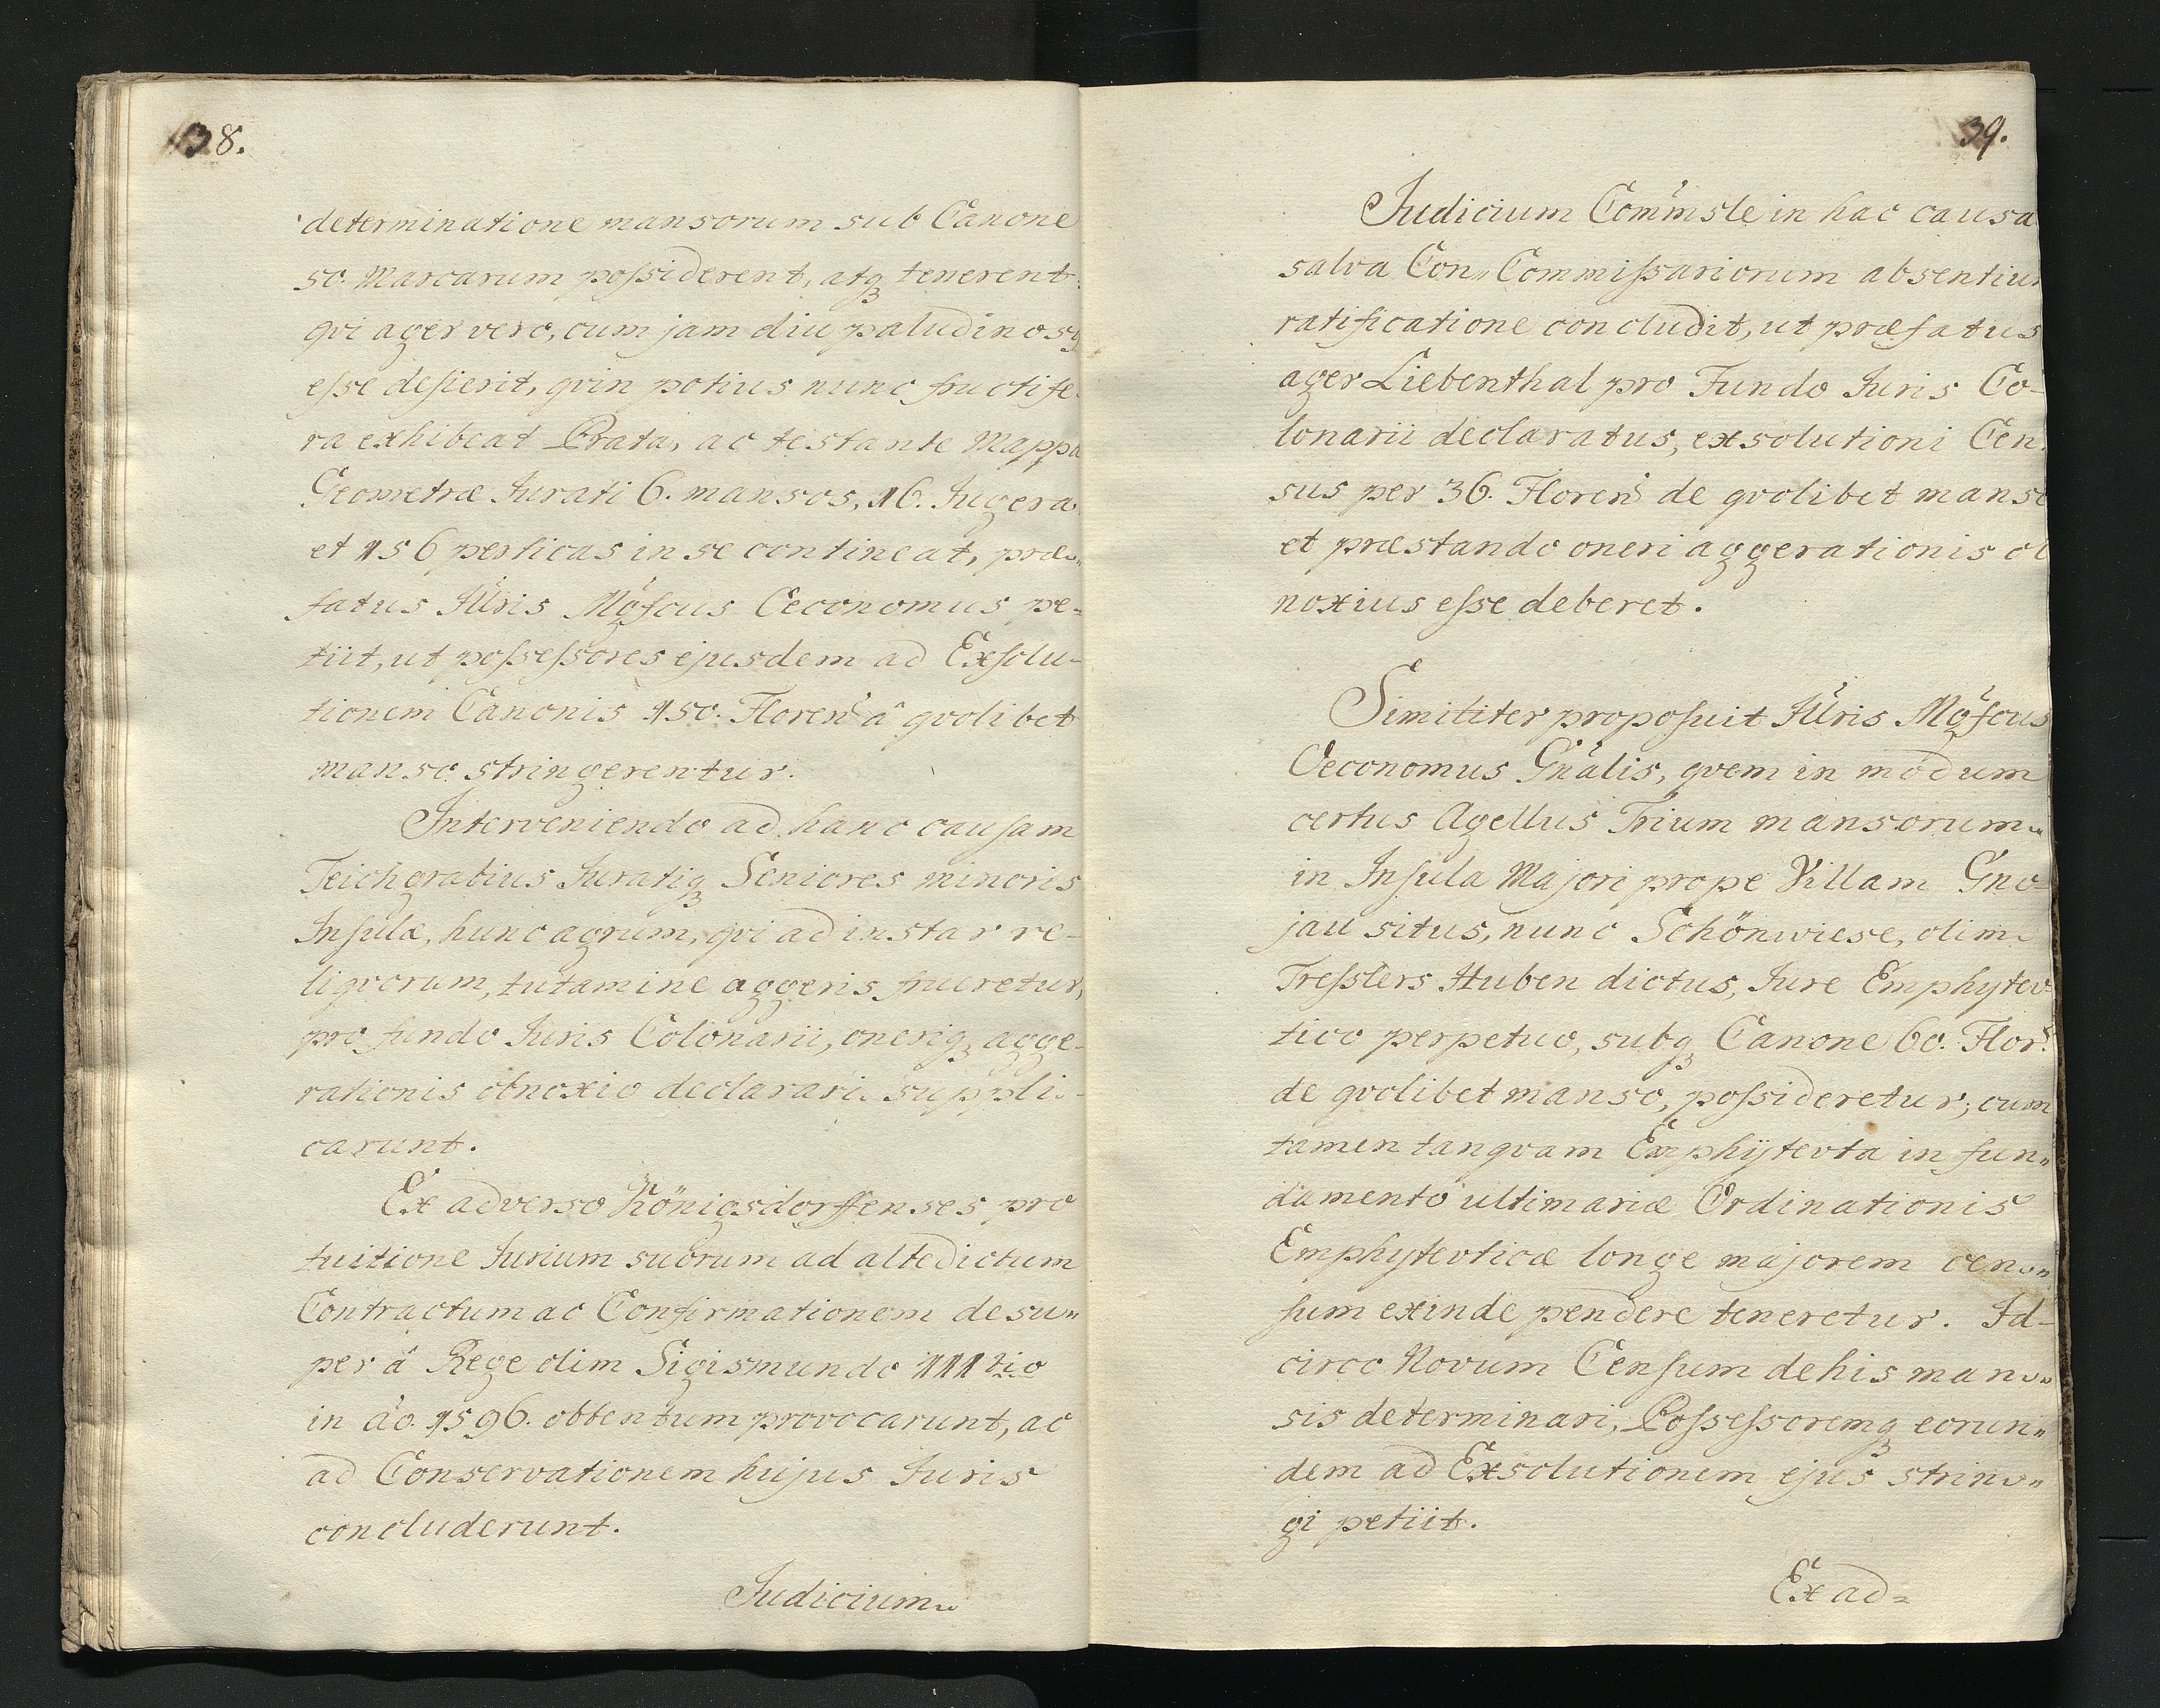 38.
determinatione mansorum sub Canone
50. Marcarum possiderent, atq tenerent
qvi ager vero, cum jam diu paludinosq
esse desierit, qvin potius nunc fructife-
ra exhibeat Prata, ac testante Mappa
Geometræ Jurati 6. mansos, 16. Jugera
et 156 perticas in se contineat, præ„
fatus Jllris Mgfcus Oeconomus pe-
tiit, ut possessores ejusdem ad Exsolu-
tionem Canonis 150. Floren à qvolibet
manso stringerentur.
Interveniendo ad hanc causam
Teichgrabius Juratiq Seniores minoris
Insulæ, hunc agrum, qvi ad instar re-
liqvorum, tutamine aggeris frueretur,
pro fundo Juris Colonarii, oneriq agge-
rationis obnoxio declarari suppli-
carunt.
Ex adverso Königsdorffenses pro
tuitione Jurium suorum ad altedictum
Contractum ac Confirmationem desu„
per à Rege olim Sigismundo III tio
in ao. 1596. obtentum provocarunt, ac
ad Conservationem hujus Juris
concluderunt.
Judicium
39.
Judicium Commsle in hac causa
salva Con„Commissariorum absentium
ratificatione concludit, ut præfatus
ager Liebenthal pro Fundo Juris Co-
lonarii declaratus, exsolutioni Cen-
sus per 36. Floren de qvolibet manso
et præstando oneri aggerationis ob
noxius esse deberet.
Similiter proposuit Jllris Mgfcus
Oeconomus Gnalis, qvem in modum
certus Agellus Trium mansorum
in Insula Majori prope Villam Gno-
jau situs, nunc Schönwiese, olim
Tresslers Huben dictus, Jure Emphytev-
tico perpetuo, subq Canone 60. Flor.
de qvolibet manso, possideretur; cum
tamen tanqvam Emphÿtevta in fun„
damento ultimariæ Ordinationis
Emphytevticæ longe majorem cen„
sum exinde pendere teneretur. Id-
circo Novum Censum de his man„
sis determinari, Possessoremq eorun„
dem ad Exsolutionem ejus strin„
gi petiit.
Ex ad=